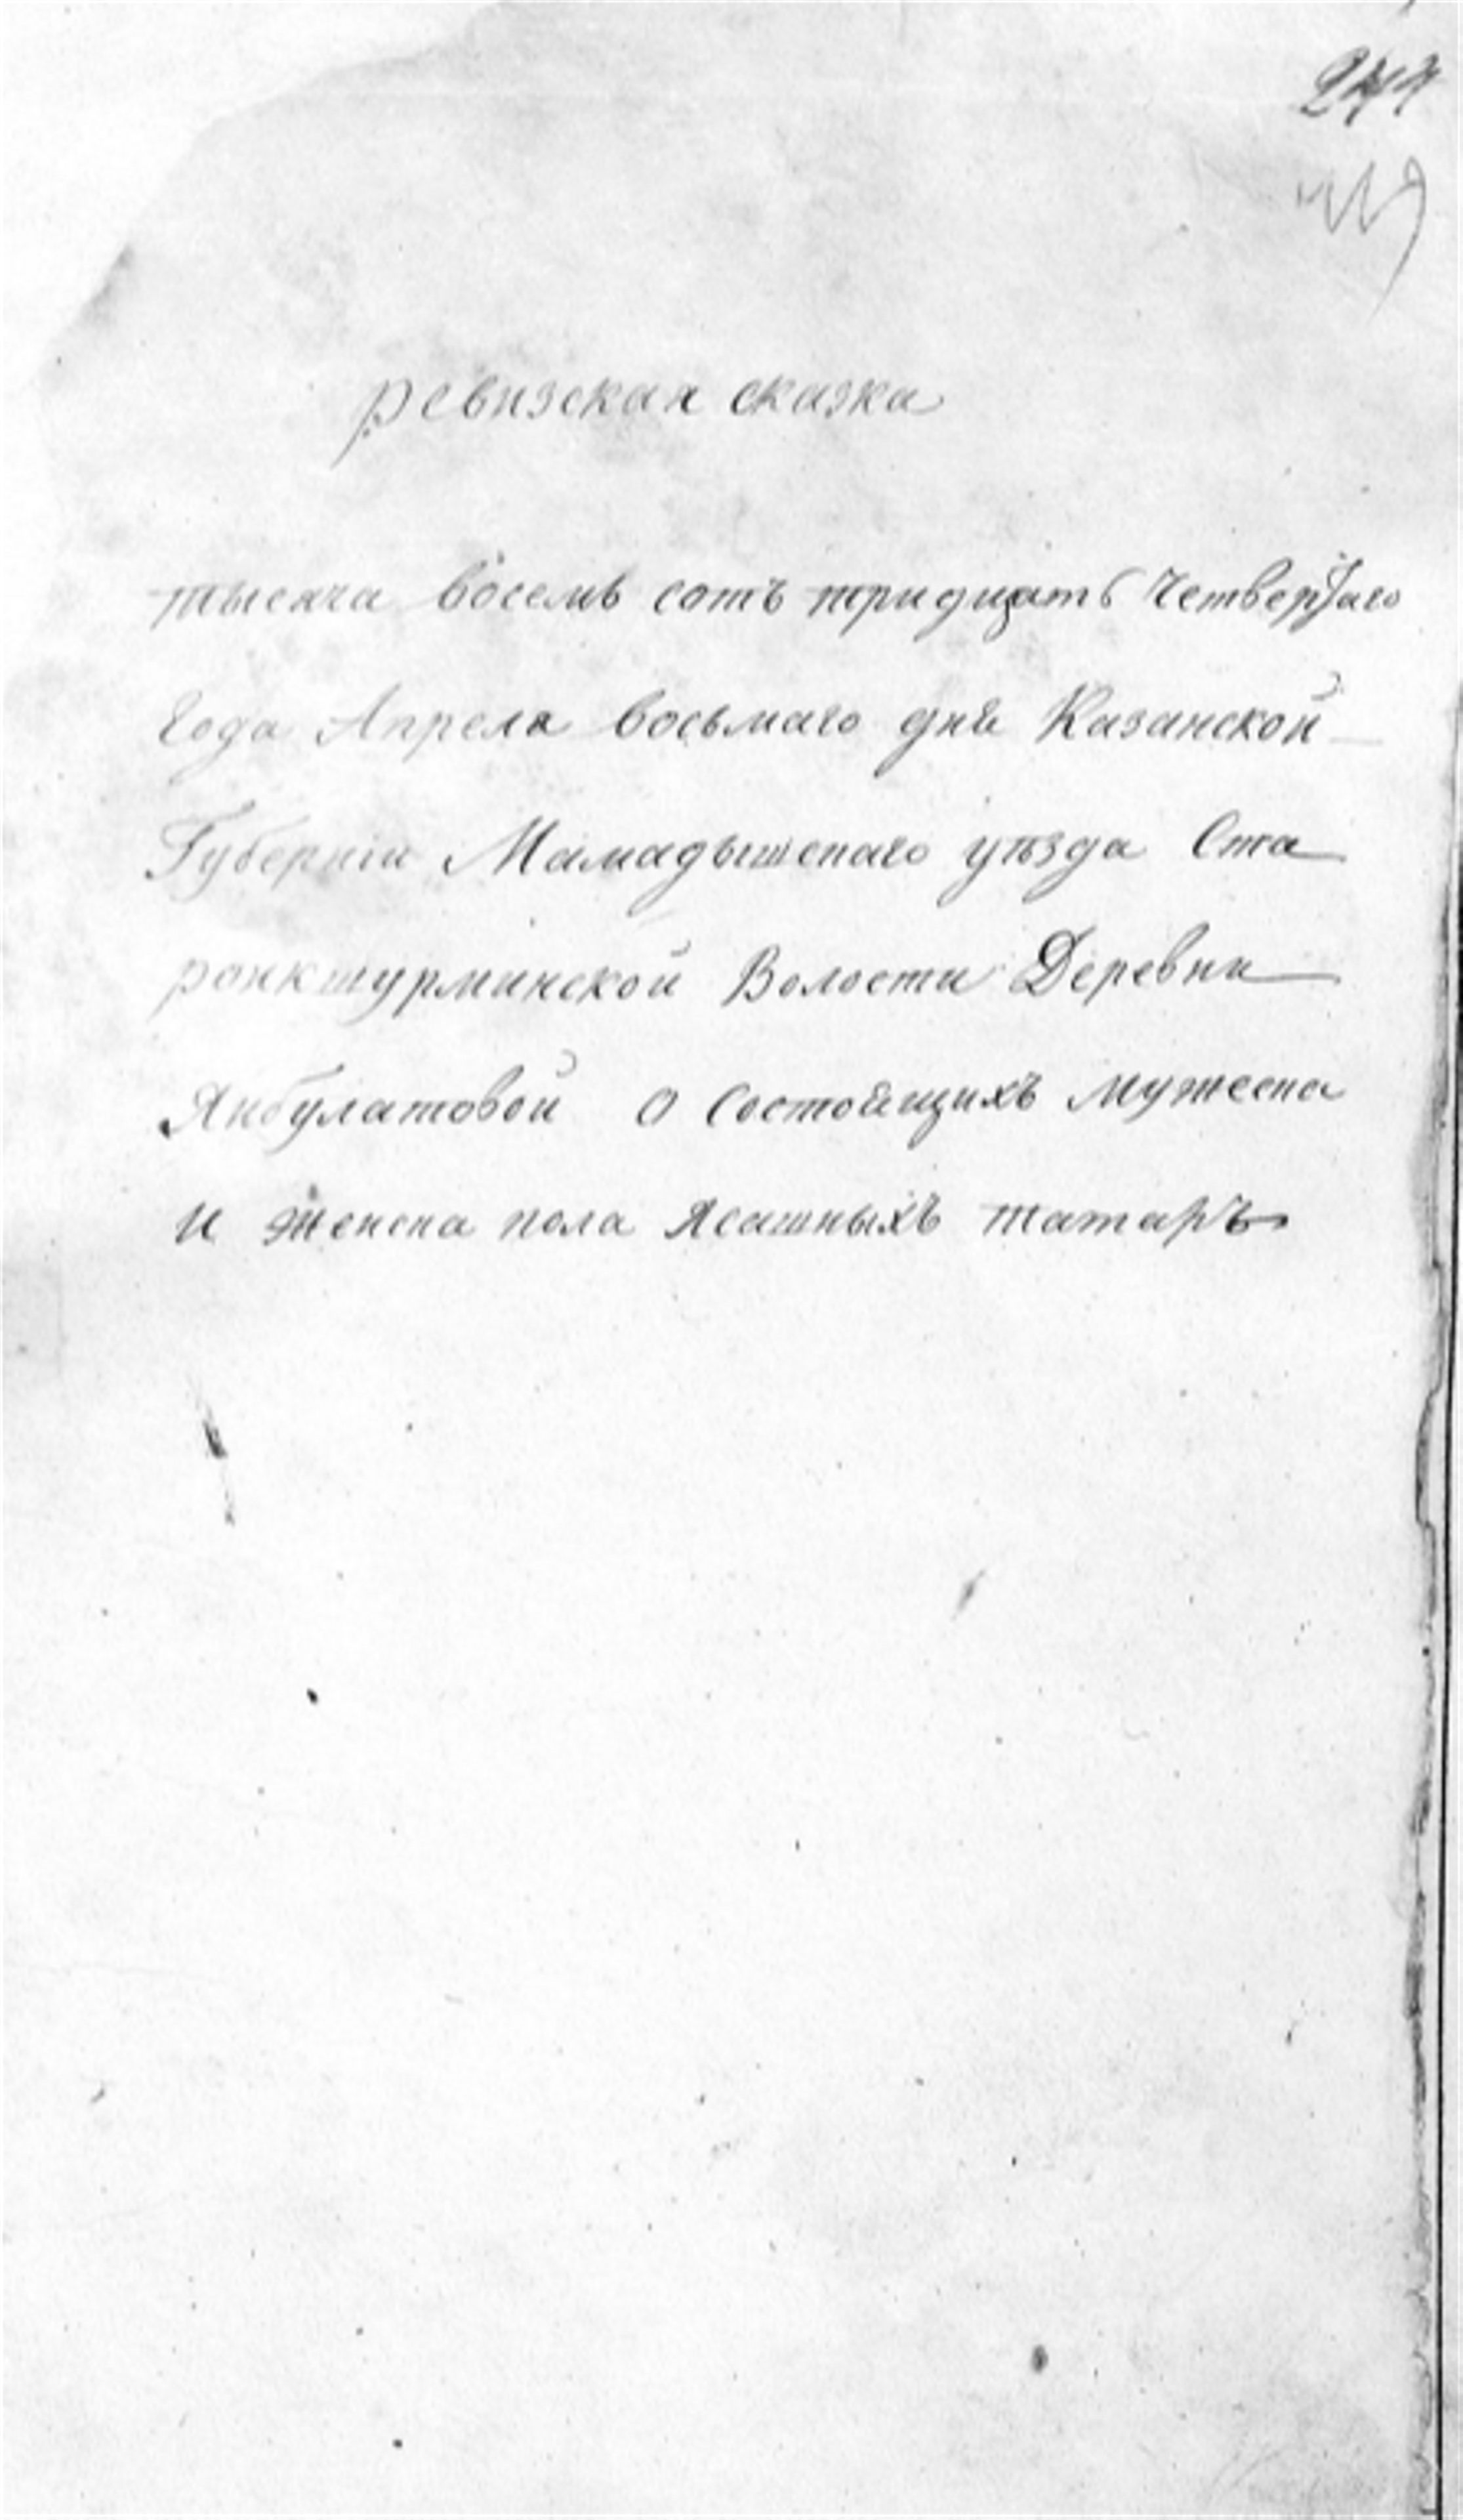 ревизская сказка
тысяча восемь сотъ тридцать четвертаго
года Апреля восьмаго дня Казанской
Губерніи Мамадышскаго уѣзда Ста
роикшурминской Волости Деревни
Янбулатовой о состоящихъ мужеска
и женска пола ясашныхъ татаръ